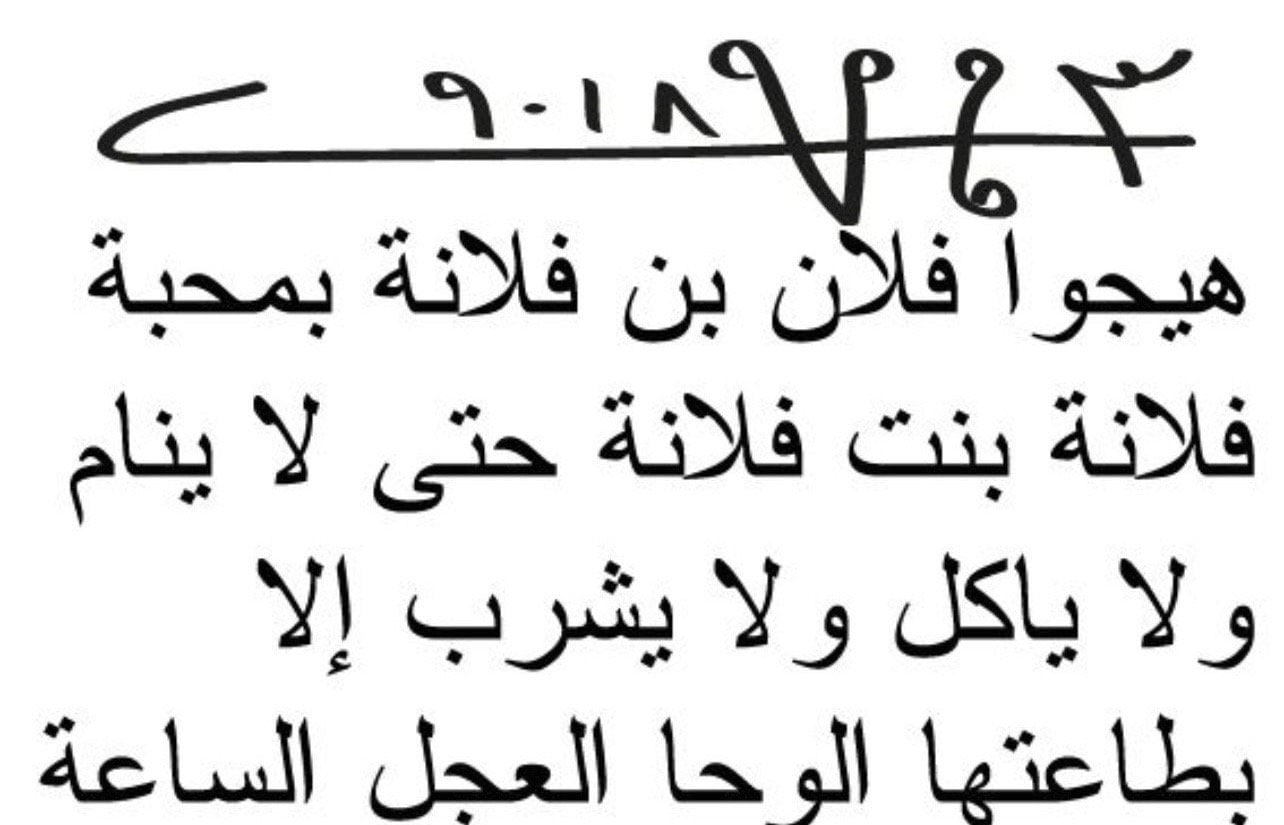 هيجوا فلان بن فلانة بمحبة
فلانة بنت فلانة حتى لا ينام
ولا ياكل ولا يشرب إلا
بطاعتها الوحا العجل الساعة